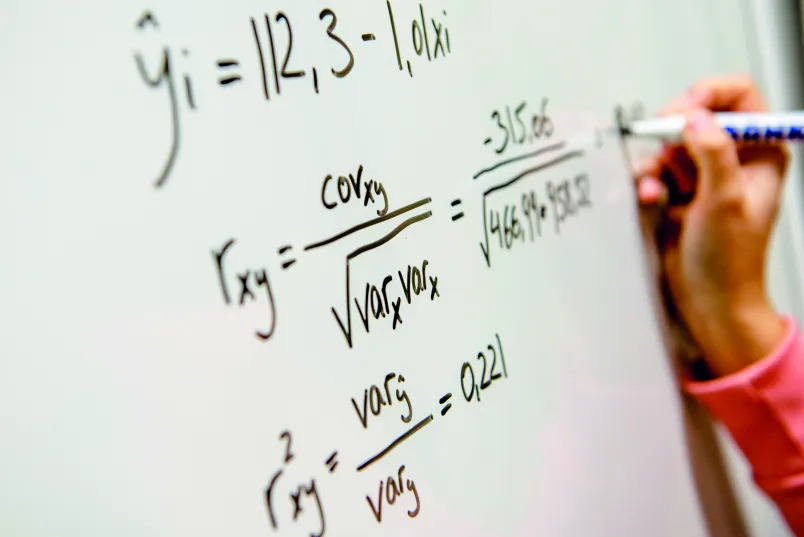 ŷi = 112,3 - 1,01xi
rxy = covxy / √varx varx = -315,06 / √466,99·458,52
r²xy = varŷ / vary = 0,221